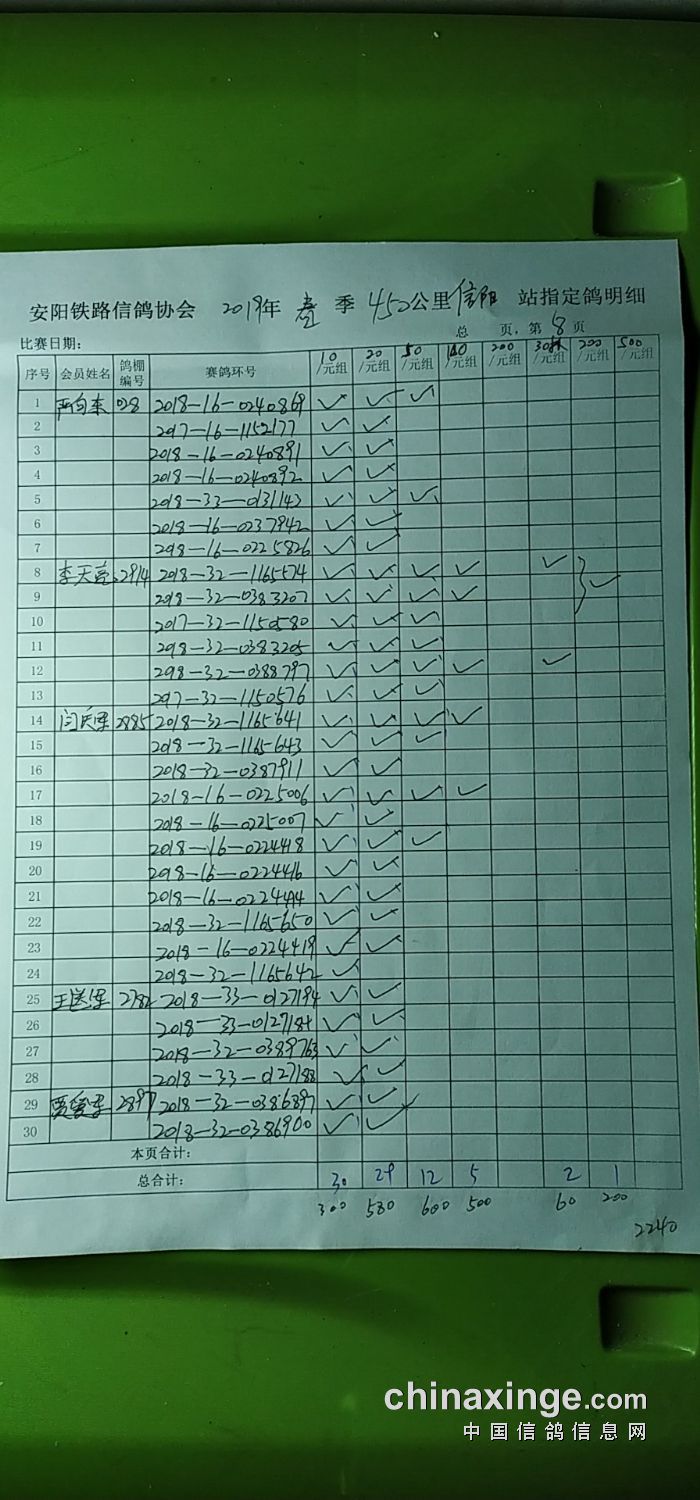 安阳铁路信鸽协会 2019年 春 季 450公里信阳 站指定鸽明细
比赛日期： 总 页，第 8 页
序号 会员姓名 鸽棚编号 赛鸽环号 10/元组 20/元组 50/元组 100/元组 200/元组 30/元组 200/元组 500/元组
1 028 2018-16-0240869 ✓ ✓ ✓
2 2017-16-1152177 ✓ ✓
3 2018-16-0240891 ✓ ✓
4 2018-16-0240892 ✓ ✓
5 2018-33-0131143 ✓ ✓ ✓
6 2018-16-0237942 ✓ ✓
7 2018-16-0225826 ✓ ✓
8 李天亮 2914 2018-32-1165574 ✓ ✓ ✓ ✓ ✓ ✓
9 2018-32-0383207 ✓ ✓ ✓ ✓
10 2017-32-1150580 ✓ ✓ ✓
11 2018-32-0383205 ✓ ✓ ✓
12 2018-32-0388797 ✓ ✓ ✓ ✓ ✓
13 2017-32-1150576 ✓ ✓ ✓
14 闫庆军 2885 2018-32-1165641 ✓ ✓ ✓ ✓
15 2018-32-1165643 ✓ ✓ ✓
16 2018-32-0387911 ✓ ✓
17 2018-16-0225006 ✓ ✓ ✓ ✓
18 2018-16-0225007 ✓ ✓
19 2018-16-0224418 ✓ ✓ ✓
20 2018-16-0224416 ✓ ✓
21 2018-16-0224414 ✓ ✓
22 2018-32-1165650 ✓ ✓
23 2018-16-0224419 ✓ ✓
24 2018-32-1165642 ✓
25 2782 2018-33-0127194 ✓ ✓
26 2018-33-0127184 ✓ ✓
27 2018-32-0389763 ✓ ✓
28 2018-33-0127188 ✓ ✓
29 2897 2018-32-0386897 ✓ ✓
30 2018-32-0386900 ✓ ✓
本页合计：
总合计： 30 29 12 5 2 1
300 580 600 500 60 200
2240
chinaxinge.com
中国信鸽信息网